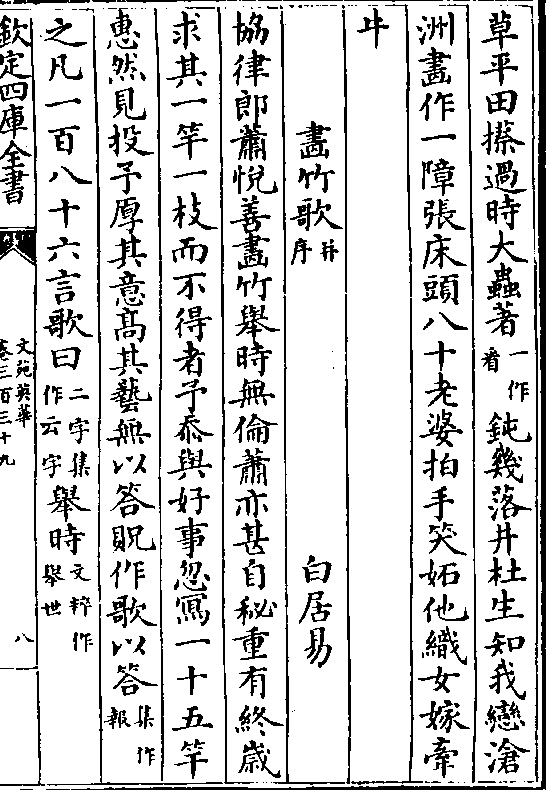 草平田搽過時大蟲著一作看鈍幾落井杜生知我戀滄
洲畫作一障張床頭八十老婆拍手笑妬他織女嫁牽
牛
畫竹歌并序 白居易
協律郎蕭悅善畫竹舉時無倫蕭亦甚自秘重有終歲
求其一竿一枝而不得者予忝與好事忽寫一十五竿
惠然見投予厚其意髙其藝無以答貺作歌以答集作報
之凡一百八十六言歌曰二字集作云字舉時文粹作舉世
欽定四庫全書
文苑英華
卷三百三十九
八